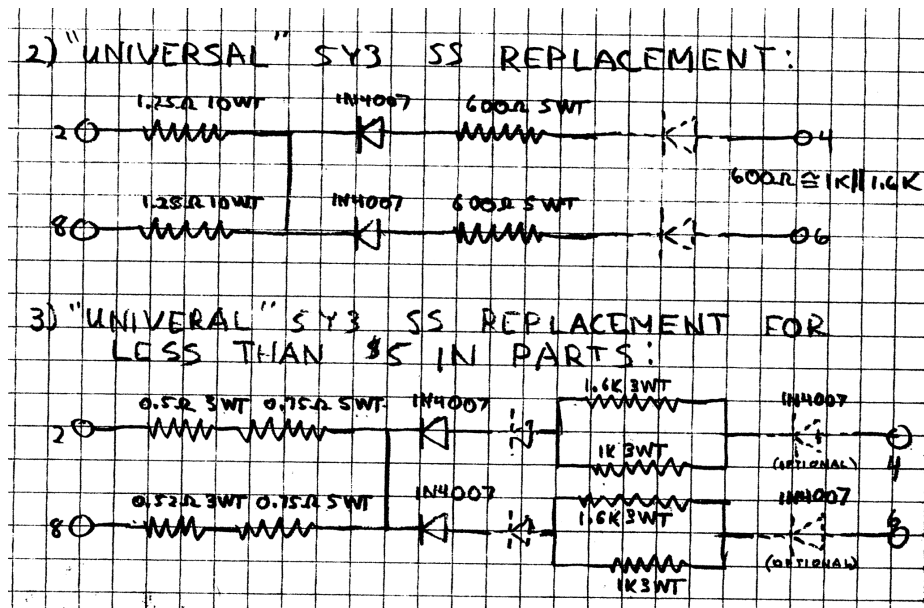 2) "UNIVERSAL" 5Y3 SS REPLACEMENT:
1.25Ω 10WT 1N4007 600Ω 5WT
2 4
600Ω ≅ 1K||1.6K
1.25Ω 10WT 1N4007 600Ω 5WT
8 6
3) "UNIVERAL" 5Y3 SS REPLACEMENT FOR
LESS THAN $5 IN PARTS:
1.6K 3WT
0.5Ω 3WT 0.75Ω 5WT 1N4007 1N4007
2
1K 3WT (OPTIONAL) 4
0.52Ω 3WT 0.75Ω 5WT 1N4007 1N4007
1.6K 3WT 6
8
(OPTIONAL)
1K 3WT